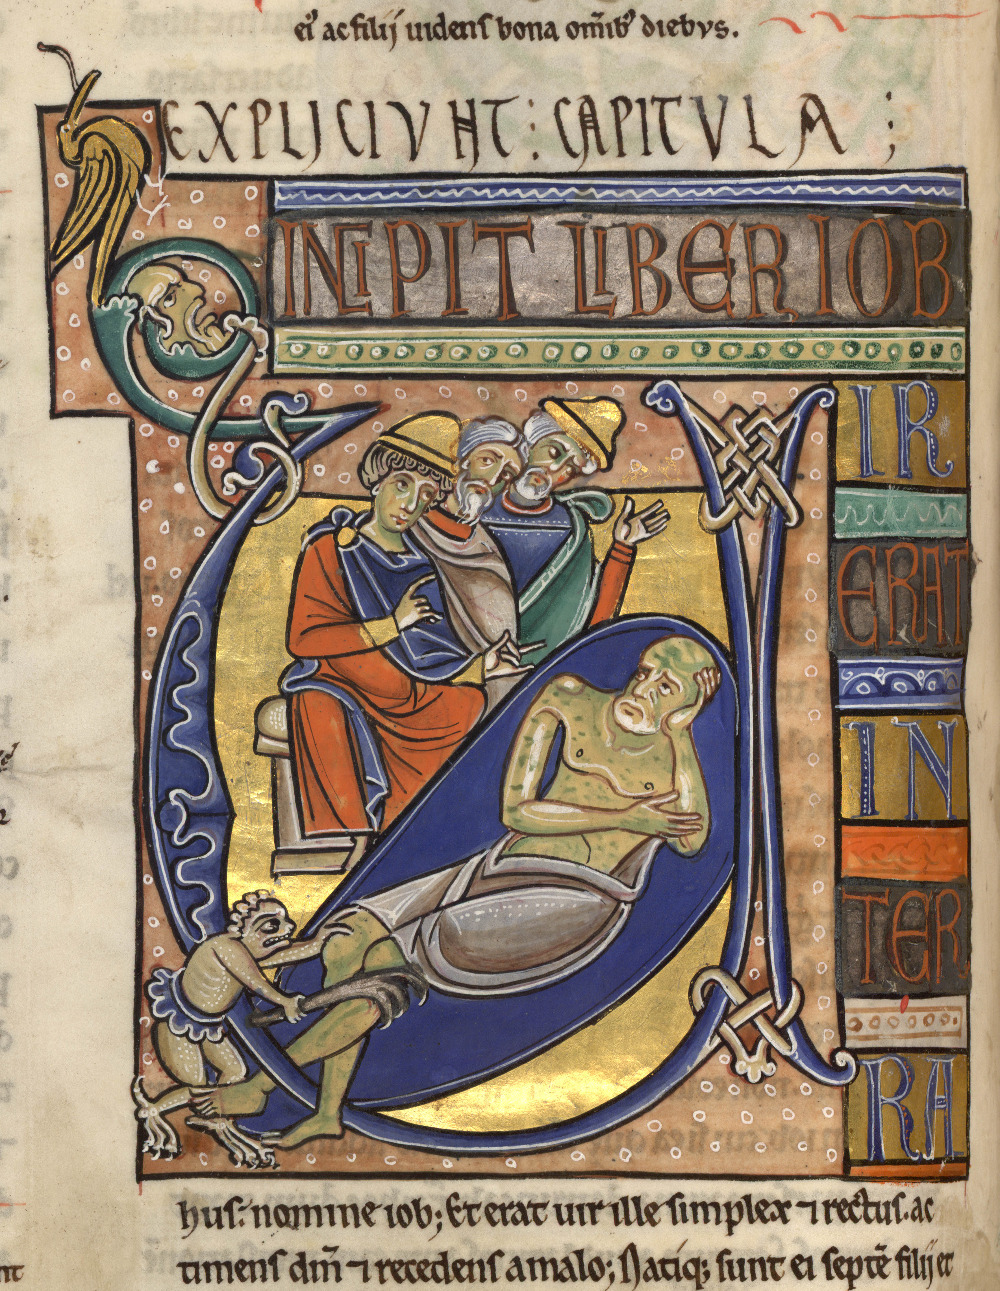 ei᾽ ac filij uidens bona om̄ib᾽ diebus.
EXPLICIVNT: CAPITVLA;
INCIPIT LIBER IOB
VIR
ERAT
IN
TER
RA
hus: nomine iob; Et erat uir ille simplex ⁊ rectus. ac
timens dm̄ ⁊ recedens a malo; Natiq; sunt ei septē filij et